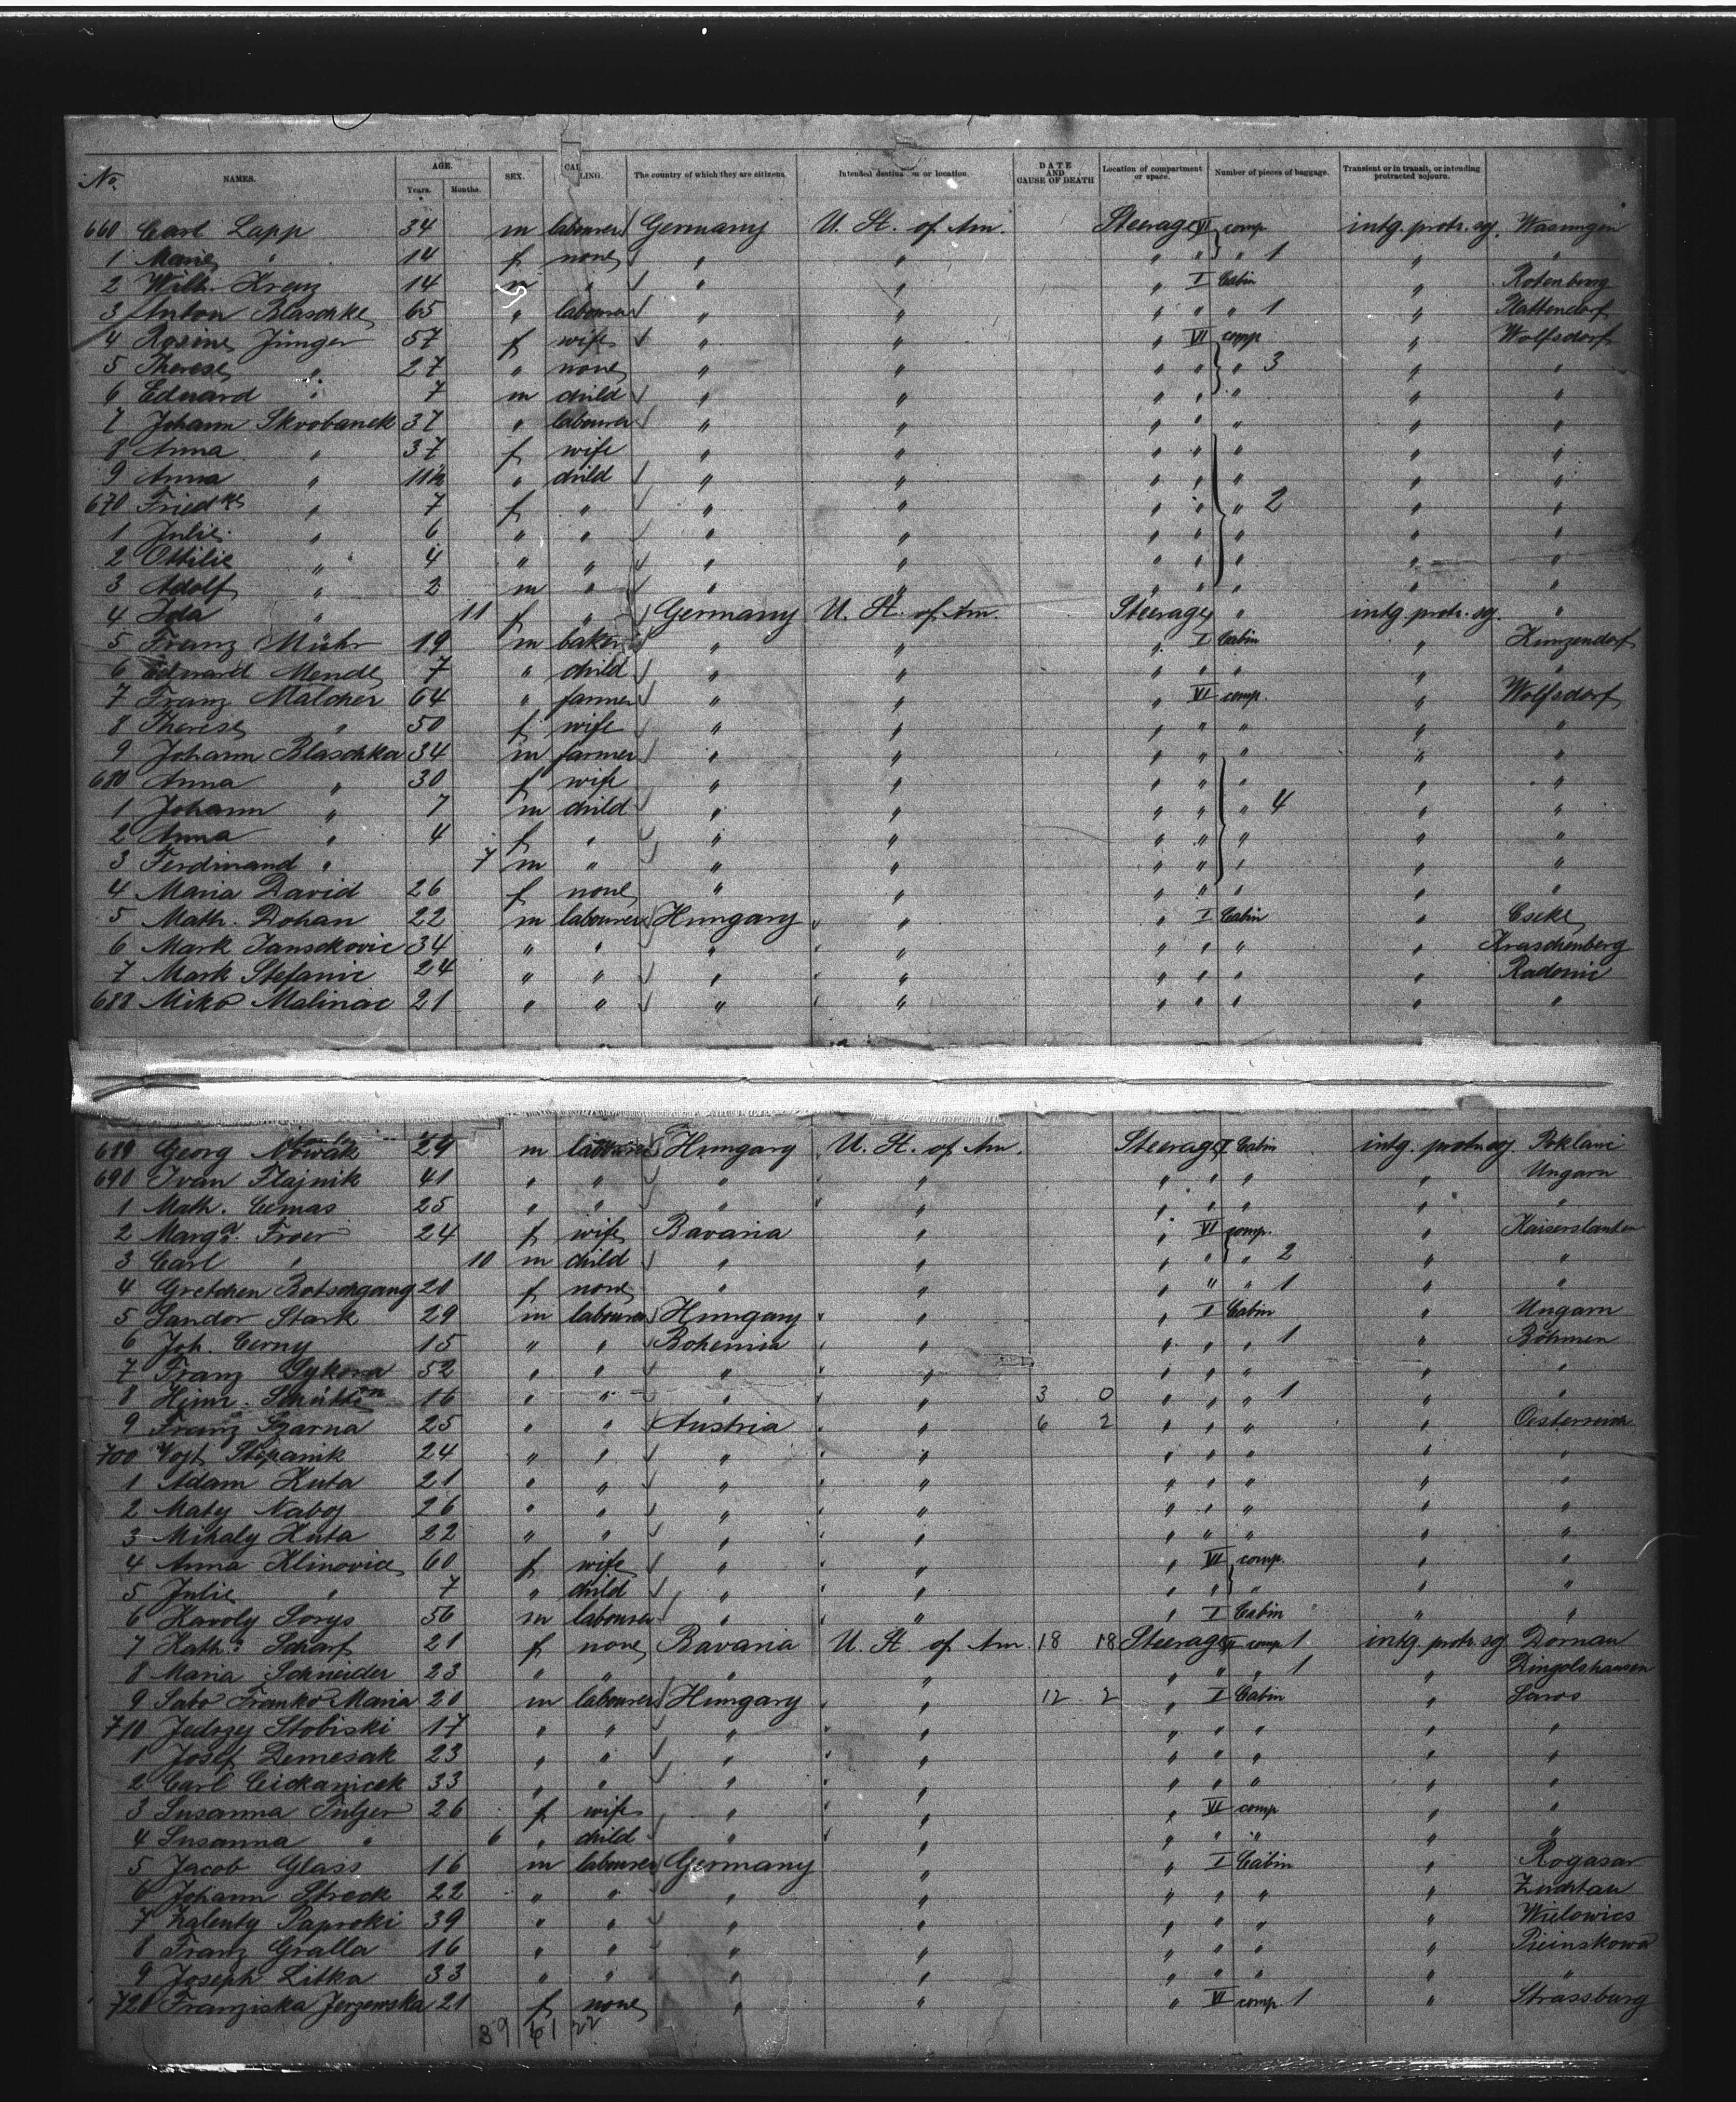 No. NAMES. AGE. Years. Months. SEX. CALLING. The country of which they are citizens. Intended destination or location. DATE AND CAUSE OF DEATH Location of compartment or space. Number of pieces of baggage. Transient or in transit, or intending protracted sojourn.
660 Carl Lapp 34 m labourer Germany U. St. of Am. Steerage VI comp intg. protr. sg. Wasungen
1 Marie " 14 f none " " " " " 1 " "
2 Wilh. Kranz 14 m " " " " I Cabin " Rotenburg
3 Anton Blaschke 65 " labourer " " " " " 1 " Hattendorf
4 Rosine Jünger 57 f wife " " " VI comp " Wolfsdorf
5 Therese " 27 " none " " " " " 3 " "
6 Eduard " 7 m child " " " " " " "
7 Johann Skrobanek 37 " labourer " " " " " " "
8 Anna " 37 f wife " " " " " " "
9 Anna " 11½ " child " " " " " " "
670 Friedke " 7 f " " " " " " 2 " "
1 Julie " 6 " " " " " " " " "
2 Ottilie " 4 " " " " " " " " "
3 Adolf " 2 m " " " " " " " "
4 Ida " 11 f " Germany U. St. of Am. Steerage " intg. protr. sg. "
5 Franz Mühr 19 m baker " " " I Cabin " Kunzendorf
6 Eduard Mende 7 " child " " " " " " "
7 Franz Malcher 64 " farmer " " " VI comp. " Wolfsdorf
8 Therese " 50 f wife " " " " " " "
9 Johann Blaschka 34 m farmer " " " " " " "
680 Anna " 30 f wife " " " " " " "
1 Johann " 7 m child " " " " " 4 " "
2 Anna " 4 f " " " " " " " "
3 Ferdinand " 7 m " " " " " " " "
4 Maria David 26 f none " " " " " " "
5 Math. Dohan 22 m labourer Hungary " " I Cabin " Cseke
6 Mark Janschovic 34 " " " " " " " " Kraschenberg
7 Mark Stefanic 24 " " " " " " " " Radonic
688 Miko Malinac 21 " " " " " " " " "
689 Georg Nowak 29 m labourer Hungary U. St. of Am. Steerage I Cabin intg. protr. sg. Poklani
690 Ivan Flajnik 41 " " " " " " " " Ungarn
1 Math. Cemas 25 " " " " " " " " "
2 Marga. Froer 24 f wife Bavaria " " VI comp. " Kaiserslautern
3 Carl " 10 m child " " " " " 2 " "
4 Gretchen Botschgang 20 f none " " " " " 1 " "
5 Sandor Stark 29 m labourer Hungary " " I Cabin " Ungarn
6 Joh. Cerny 15 " " Bohemia " " " " 1 " Böhmen
7 Franz Sykora 52 " " " " " " " " "
8 Heinr. 16 " " " " 3 0 " " " 1 " "
9 Franz Szarna 25 " " Austria " 6 2 " " " " Oesterreich
700 Vojt. Stepanik 24 " " " " " " " " "
1 Adam Kuta 21 " " " " " " " " "
2 Maty Naboj 26 " " " " " " " " "
3 Mihaly Kuta 22 " " " " " " " " "
4 Anna Klinovice 60 f wife " " " VI comp. " "
5 Julie " 7 " child " " " " " " "
6 Karoly Sorys 56 m labourer " " " I Cabin " "
7 Katha. Scharf 21 f none Bavaria U. St. of Am. 18 18 Steerage VI comp 1 intg. protr. sg. Dornau
8 Maria Schneider 23 " " " " " " " 1 " Dingolshausen
9 Sabo Franko Maria 20 m labourer Hungary " 12 2 " I Cabin " Saros
710 Jedrzej Stobiski 17 " " " " " " " " "
1 Josef Demesak 23 " " " " " " " " "
2 Carl Cickanicek 33 " " " " " " " " "
3 Susanna Tutjer 26 f wife " " " VI comp " "
4 Susanna " 6 " child " " " " " " "
5 Jacob Glass 16 m labourer Germany " " I Cabin " Rogasar
6 Johann Streck 22 " " " " " " " " Zuchtau
7 Zalenty Paproki 39 " " " " " " " " Wielowics
8 Franz Gralla 16 " " " " " " " " Pieinskowa
9 Joseph Litka 33 " " " " " " " " "
720 Franziska Jerzewska 21 f none " " " VI comp 1 " Strassburg
39 61 22